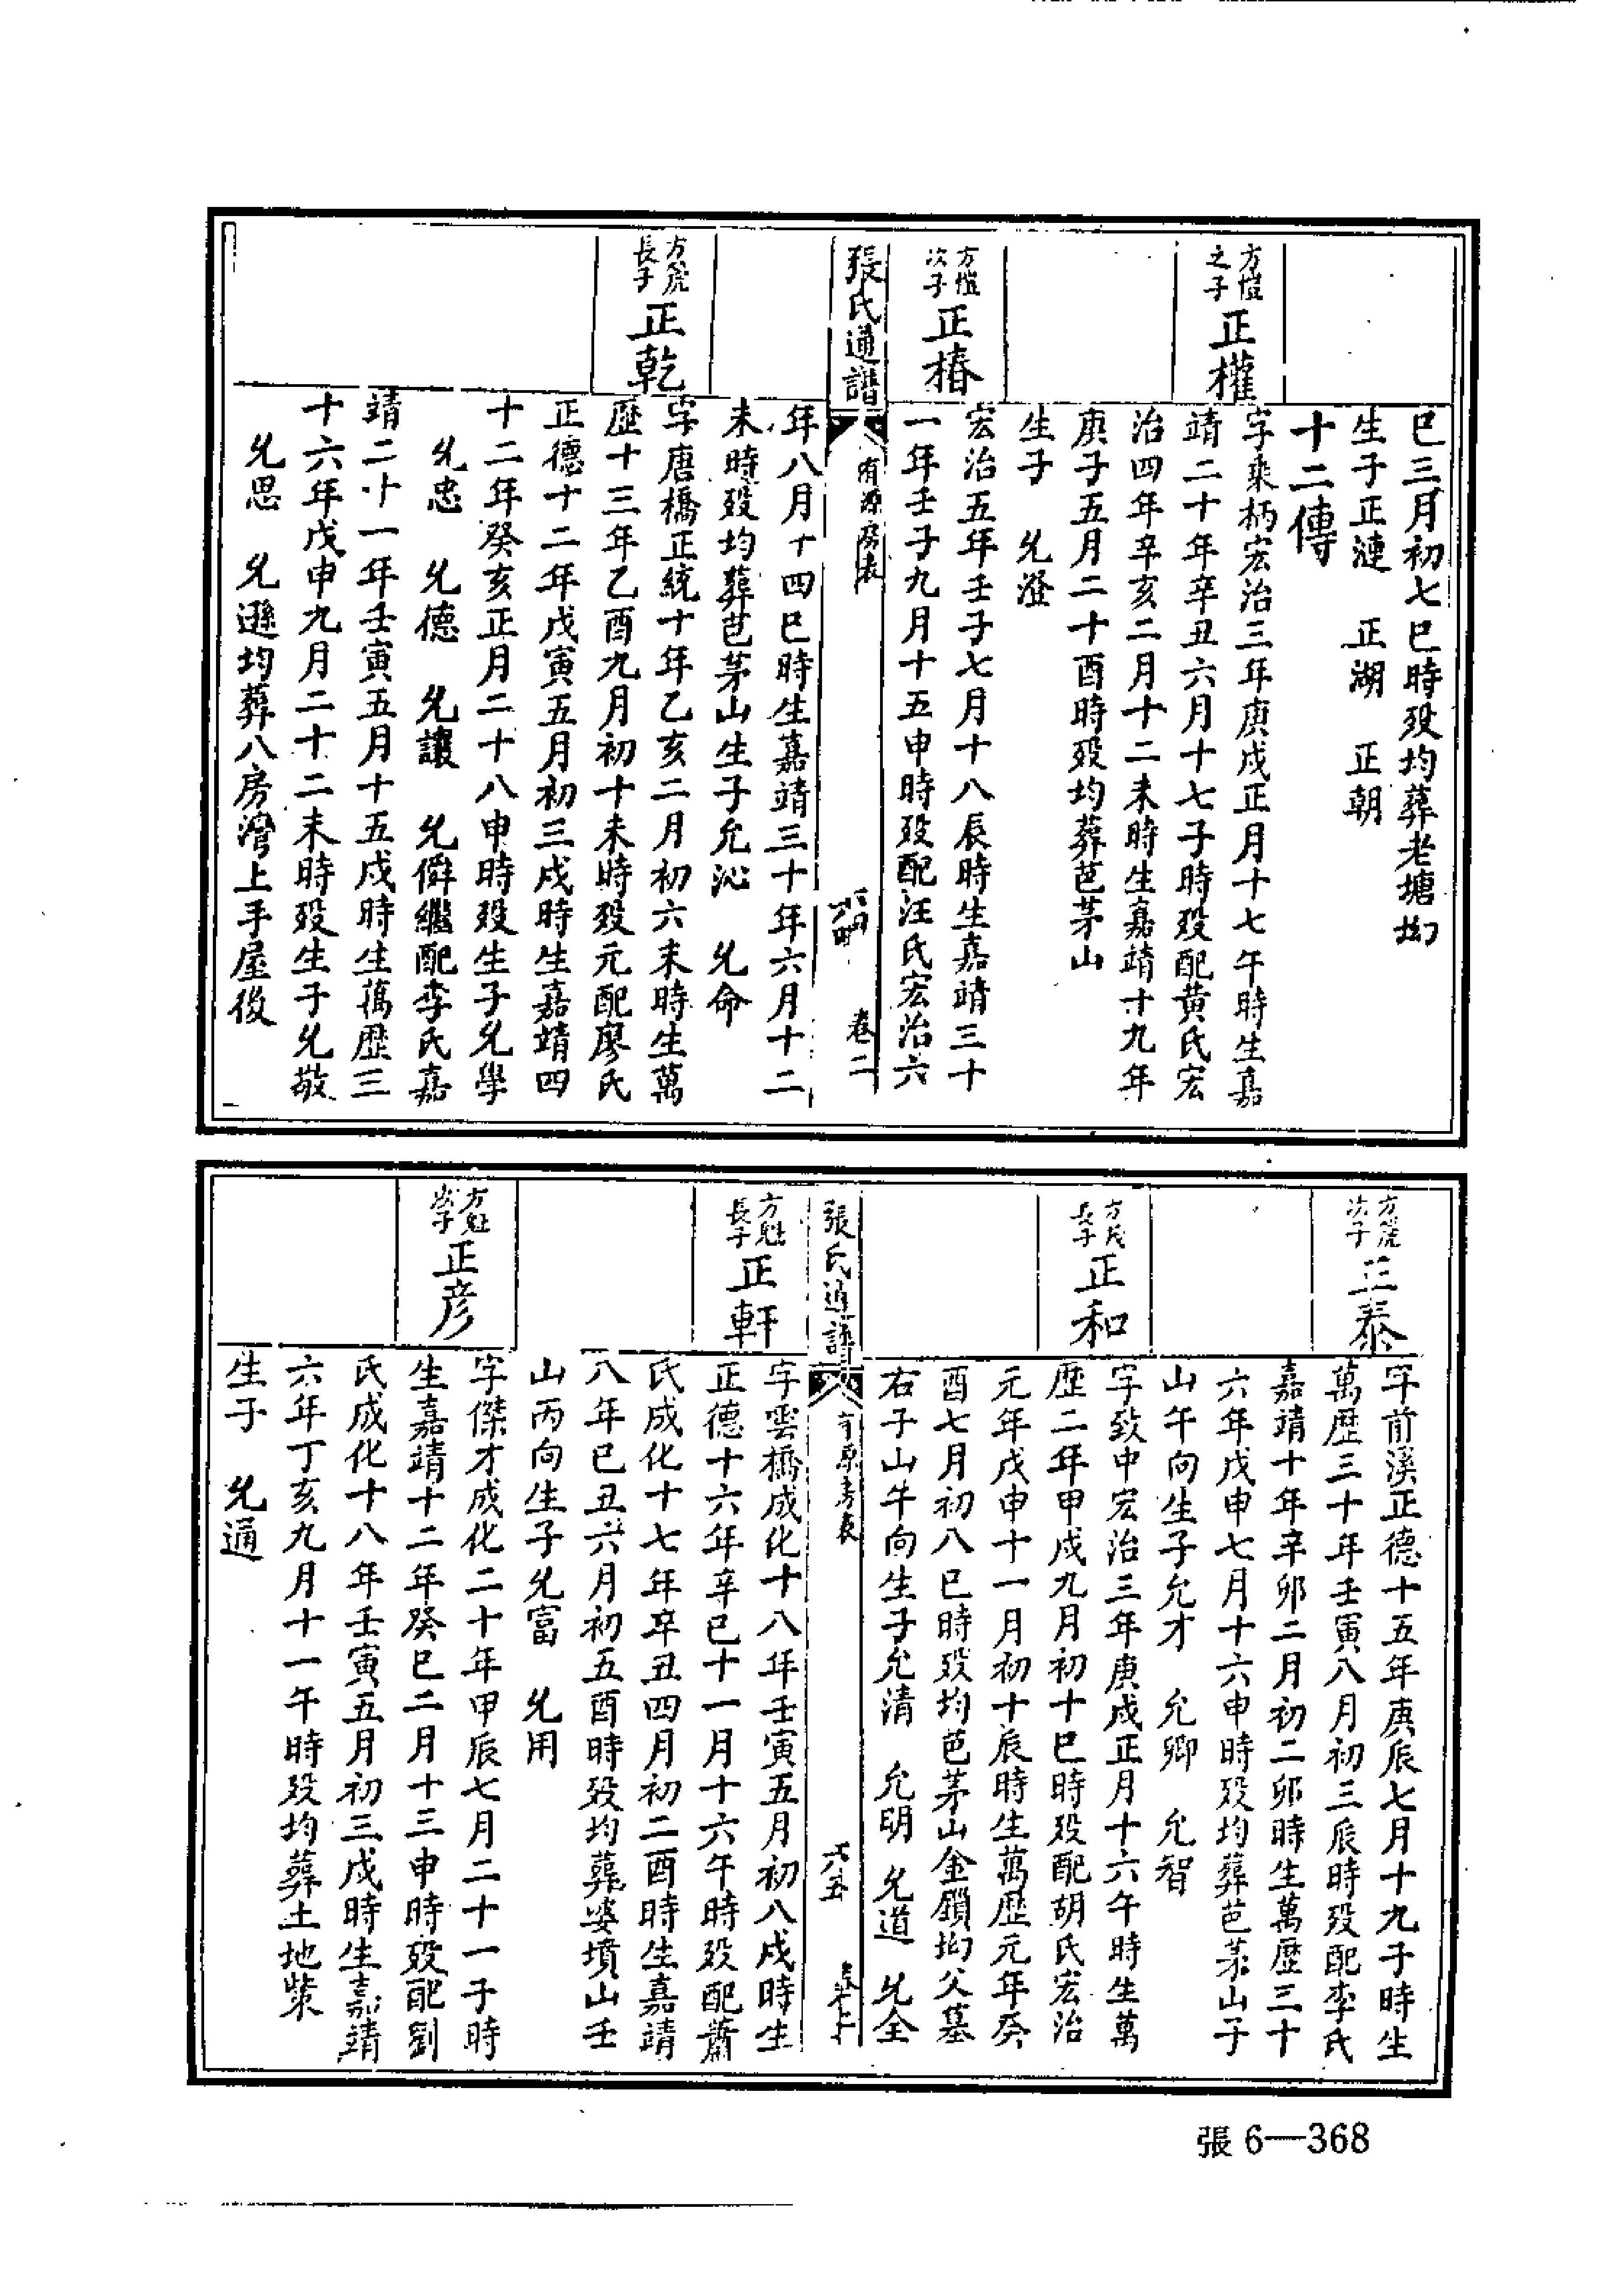 巳三月初七巳時歿均葬老塘坳
生子正漣　正湖　正朝
十二傳
方愷之子 正權
字秉柄宏治三年庚戌正月十七午時生嘉
靖二十年辛丑六月十七子時歿配黄氏宏
治四年辛亥二月十二未時生嘉靖十九年
庚子五月二十酉時歿均葬芭茅山
生子　允澄
方愷次子 正椿
宏治五年壬子七月十八辰時生嘉靖三十
一年壬子九月十五申時歿配汪氏宏治六
張氏通譜　有源房表　六四　卷二
年八月十四巳時生嘉靖三十年六月十二
未時歿均葬芭茅山生子允沁　允命
方虎長子 正乾
字唐橋正統十年乙亥二月初六未時生萬
歷十三年乙酉九月初十未時歿元配廖氏
正德十二年戊寅五月初三戌時生嘉靖四
十二年癸亥正月二十八申時歿生子允學
允忠　允德　允讓　允僯繼配李氏嘉
靖二十一年壬寅五月十五戌時生萬歷三
十六年戊申九月二十二未時歿生子允敬
允思　允遜均葬八房灣上手屋後
次子 正泰
字前溪正德十五年庚辰七月十九子時生
萬歷三十年壬寅八月初三辰時歿配李氏
嘉靖十年辛卯二月初二卯時生萬歷三十
六年戊申七月十六申時歿均葬芭茅山子
山午向生子允才　允卿　允智
長子 正和
字致中宏治三年庚戌正月十六午時生萬
歷二年甲戌九月初十巳時歿配胡氏宏治
元年戊申十一月初十辰時生萬歷元年癸
酉七月初八巳時歿均芭茅山金鎖坳父墓
右子山午向生子允清　允明　允道　允全
張氏通譜　有源房表　六五　卷二
方魁長子 正軒
字雲橋成化十八年壬寅五月初八戌時生
正德十六年辛巳十一月十六午時歿配蕭
氏成化十七年辛丑四月初二酉時生嘉靖
八年巳丑六月初五酉時歿均葬婆墳山壬
山丙向生子允富　允用
方魁次子 正彦
字傑才成化二十年甲辰七月二十一子時
生嘉靖十二年癸巳二月十三申時歿配劉
氏成化十八年壬寅五月初三戌時生嘉靖
六年丁亥九月十一午時歿均葬土地柴
生子　允通
張 6—368